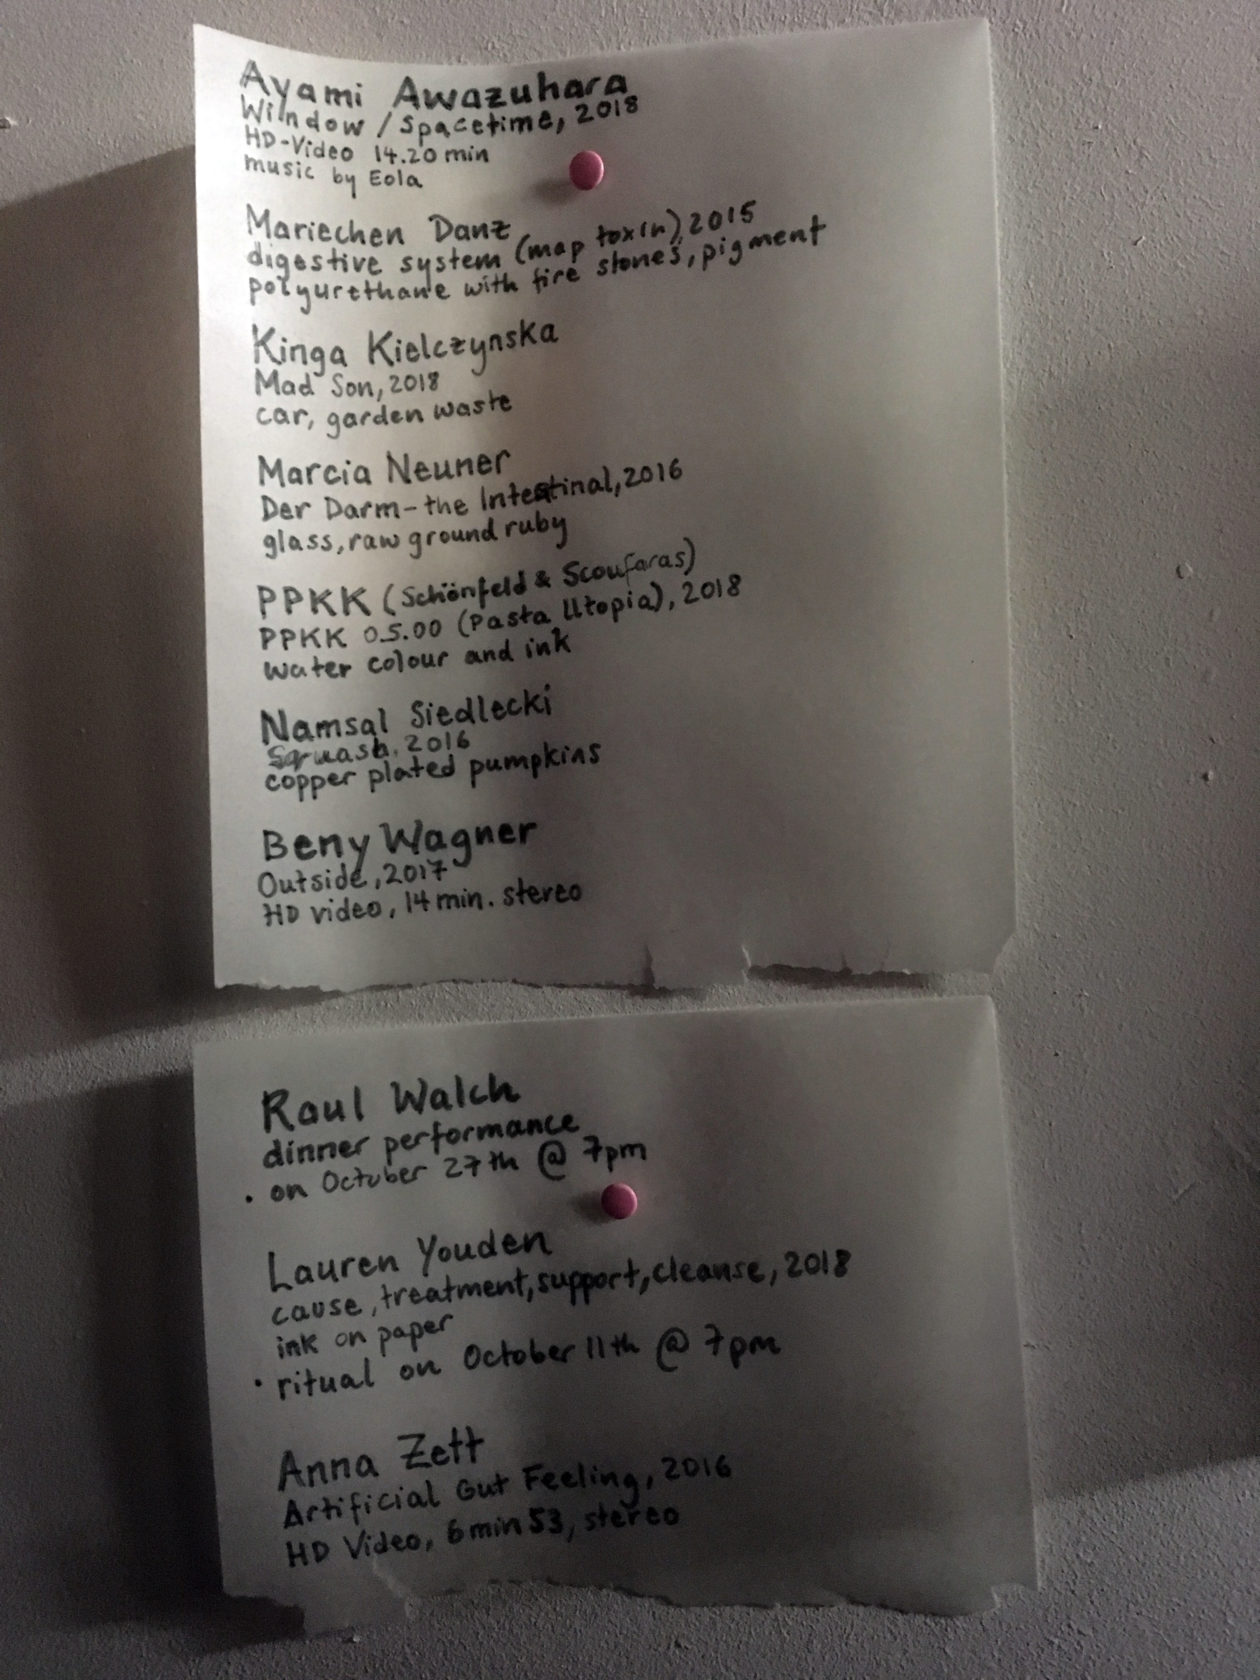 Ayami Awazuhara
Window / Spacetime, 2018
HD-Video 14.20 min
music by Eola
Mariechen Danz
digestive system (map toxin), 2015
polyurethane with fire stones, pigment
Kinga Kielczynska
Mad Son, 2018
car, garden waste
Marcia Neuner
Der Darm - the Intestinal, 2016
glass, raw ground ruby
PPKK (Schönfeld & Scoufaras)
PPKK 0.5.00 (Pasta Utopia), 2018
water colour and ink
Namsal Siedlecki
Squash, 2016
copper plated pumpkins
Beny Wagner
Outside, 2017
HD video, 14 min. stereo
Raul Walch
dinner performance
• on October 27th @ 7pm
Lauren Youden
cause, treatment, support, cleanse, 2018
ink on paper
• ritual on October 11th @ 7pm
Anna Zett
Artificial Gut Feeling, 2016
HD Video, 6 min 53, stereo